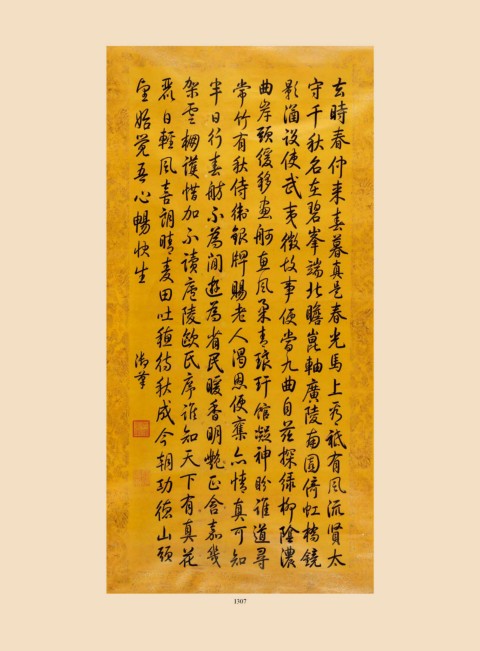 去時春仲来春暮真是春光馬上看祗有風流賢太
守千秋名在碧峯端北瞻崑軸廣陵南圓倚虹橋鏡
影涵设使武夷徵故事便當九曲自茲探綠柳陰濃
曲岸頭緩移畫舸惠風柔青琅玕館凝神盼誰道尋
常竹有秋侍衛銀牌賜老人渴恩便集亦情真可知
半日行春舫不為閒遊為省民暖香明艷正含嘉幾
架雲棚護惜加不讀廬陵歐氏序誰知天下有真花
麗日輕風喜調晴麦田吐穗待秋成今朝功德山頭
望始覺吾心暢快生
御筆
1307